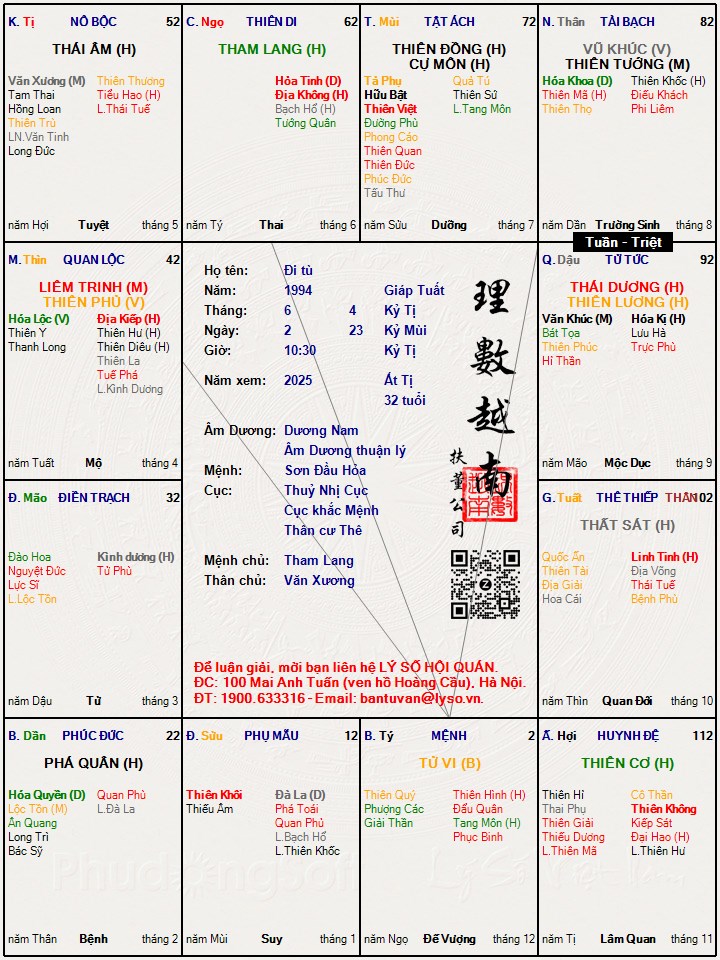 K. Tị NÔ BỘC 52
THÁI ÂM (H)
Văn Xương (M) Thiên Thương
Tam Thai Tiểu Hao (H)
Hồng Loan L.Thái Tuế
Thiên Trù
LN.Văn Tinh
Long Đức
năm Hợi Tuyệt tháng 5
C. Ngọ THIÊN DI 62
THAM LANG (H)
Hỏa Tinh (D)
Địa Không (H)
Bạch Hổ (H)
Tướng Quân
năm Tý Thai tháng 6
T. Mùi TẬT ÁCH 72
THIÊN ĐỒNG (H)
CỰ MÔN (H)
Tả Phụ Quả Tú
Hữu Bật Thiên Sứ
Thiên Việt L.Tang Môn
Đường Phù
Phong Cáo
Thiên Quan
Thiên Đức
Phúc Đức
Tấu Thư
năm Sửu Dưỡng tháng 7
N. Thân TÀI BẠCH 82
VŨ KHÚC (V)
THIÊN TƯỚNG (M)
Hóa Khoa (D) Thiên Khốc (H)
Thiên Mã (H) Điếu Khách
Thiên Thọ Phi Liêm
năm Dần Trường Sinh tháng 8
Tuần - Triệt
M. Thìn QUAN LỘC 42
LIÊM TRINH (M)
THIÊN PHỦ (V)
Hóa Lộc (V) Địa Kiếp (H)
Thiên Y Thiên Hư (H)
Thanh Long Thiên Diêu (H)
Thiên La
Tuế Phá
L.Kình Dương
năm Tuất Mộ tháng 4
Họ tên: Đi tù
Năm: 1994 Giáp Tuất
Tháng: 6 4 Kỷ Tị
Ngày: 2 23 Kỷ Mùi
Giờ: 10:30 Kỷ Tị
Năm xem: 2025 Ất Tị
32 tuổi
Âm Dương: Dương Nam
Âm Dương thuận lý
Mệnh: Sơn Đầu Hỏa
Cục: Thuỷ Nhị Cục
Cục khắc Mệnh
Thân cư Thê
Mệnh chủ: Tham Lang
Thân chủ: Văn Xương
理數越南
扶董公司
Để luận giải, mời bạn liên hệ LÝ SỐ HỘI QUÁN.
ĐC: 100 Mai Anh Tuấn (ven hồ Hoàng Cầu), Hà Nội.
ĐT: 1900.633316 - Email: bantuvan@lyso.vn.
Q. Dậu TỬ TỨC 92
THÁI DƯƠNG (H)
THIÊN LƯƠNG (H)
Văn Khúc (M) Hóa Kị (H)
Bát Tọa Lưu Hà
Thiên Phúc Trực Phù
Hỉ Thần
năm Mão Mộc Dục tháng 9
Đ. Mão ĐIỀN TRẠCH 32
Đào Hoa Kình dương (H)
Nguyệt Đức Tử Phù
Lực Sĩ
L.Lộc Tồn
năm Dậu Tử tháng 3
G. Tuất THÊ THIẾP THÂN 102
THẤT SÁT (H)
Quốc Ấn Linh Tinh (H)
Thiên Tài Địa Võng
Địa Giải Thái Tuế
Hoa Cái Bệnh Phù
năm Thìn Quan Đới tháng 10
B. Dần PHÚC ĐỨC 22
PHÁ QUÂN (H)
Hóa Quyền (D) Quan Phủ
Lộc Tồn (M) L.Đà La
Ân Quang
Long Trì
Bác Sỹ
năm Thân Bệnh tháng 2
Đ. Sửu PHỤ MẪU 12
Thiên Khôi Đà La (D)
Thiếu Âm Phá Toái
Quan Phủ
L.Bạch Hổ
L.Thiên Khốc
năm Mùi Suy tháng 1
B. Tý MỆNH 2
TỬ VI (B)
Thiên Quý Thiên Hình (H)
Phượng Các Đẩu Quân
Giải Thần Tang Môn (H)
Phục Binh
năm Ngọ Đế Vượng tháng 12
Ấ. Hợi HUYNH ĐỆ 112
THIÊN CƠ (H)
Thiên Hỉ Cô Thần
Thai Phụ Thiên Không
Thiên Giải Kiếp Sát
Thiếu Dương Đại Hao (H)
L.Thiên Mã L.Thiên Hư
năm Tị Lâm Quan tháng 11